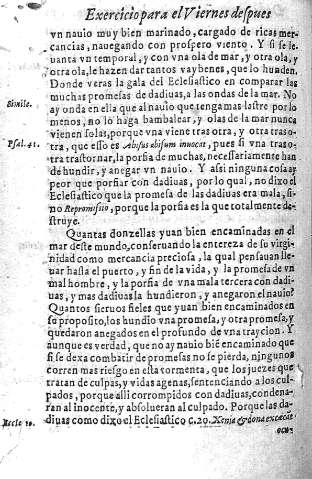 Exercicio para el Viernes despues
vn nauio muy bien marinado, cargado de ricas mer-
cancias, nauegando con prospero viento. Y si se le-
uanta vn temporal, y con vna ola de mar, y otra ola, y
otra ola, le hazen dar tantos vaybenes, que lo hunden.
Donde veras la gala del Eclesiastico en comparar las
muchas promesas de dadiuas, a las ondas de la mar. No
Simile.
ay onda en ella que al nauio que tengamas lastre por lo
menos, no lo haga bambalear, y olas de la mar nunca
vienen solas, porque vna viene tras otra, y otra tras o-
Psal. 41.
tra, que esso es Abissus abisum inuocat, pues si vna tras o-
tra trastornar, la porfia de muchas, necessariamente han
de hundir, y anegar vn nauio. Y assi ninguna cosa ay
peor que porfiar con dadiuas, por lo qual, no dixo el
Eclesiastico que la promesa de las dadiuas era mala, si-
no Repromissio, porque la porfia es la que totalmente de-
struye.
Quantas donzellas yuan bien encaminadas en el
mar deste mundo, conseruando la entereza de su virgi-
nidad como mercancia preciosa, la qual pensauan lle-
uar hasta el puerto, y fin de la vida, y la promesa de vn
mal hombre, y la porfia de vna mala tercera con dadi-
uas, y mas dadiuas la hundieron, y anegaron el nauio?
Quantos sieruos fieles que yuan bien encaminados en
su proposito, los hundio vna promesa, y otra promesa, y
quedaron anegados en el profundo de vna traycion. Y
aunque es verdad, que no ay nauio bié encaminado que
si se dexa combatir de promesas no se pierda, ningunos
corren mas riesgo en esta tormenta, que los juezes que
tratan de culpas, y vidas agenas, sentenciando a los cul-
pados, porque alli corrompidos con dadiuas, condena-
ran al inocente, y absolueran al culpado. Porque las da-
Eccle 20.
diuas como dixo el Eclesiastico c. 20. Xenia & dona excæcāt